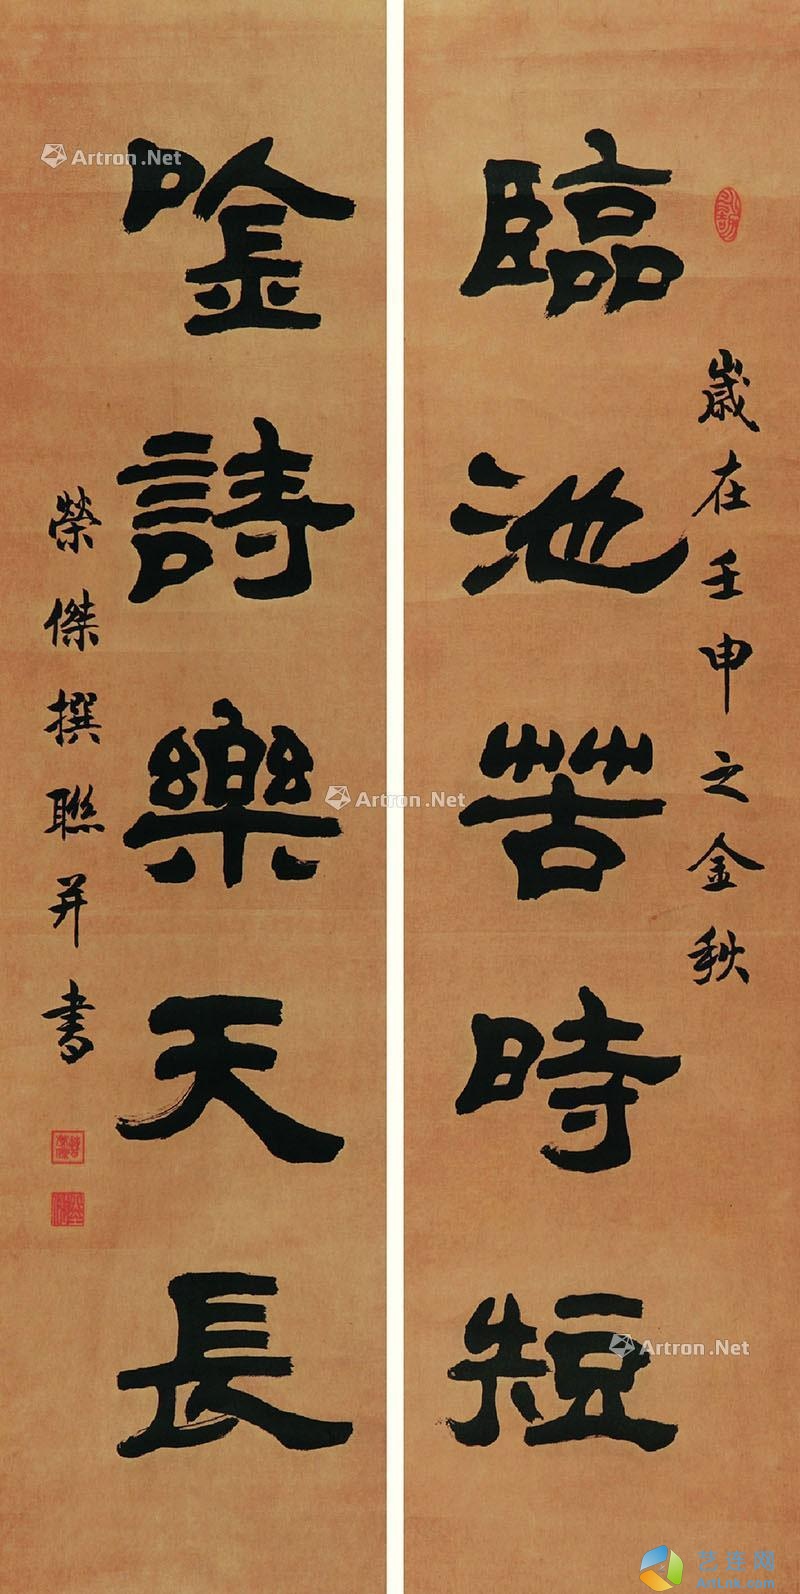 臨池苦時短
歲在壬申之金秋
唫詩樂天長
榮傑撰聯并書
Artron.Net
Artron.Net
Artron.Net
艺连网
Art.net